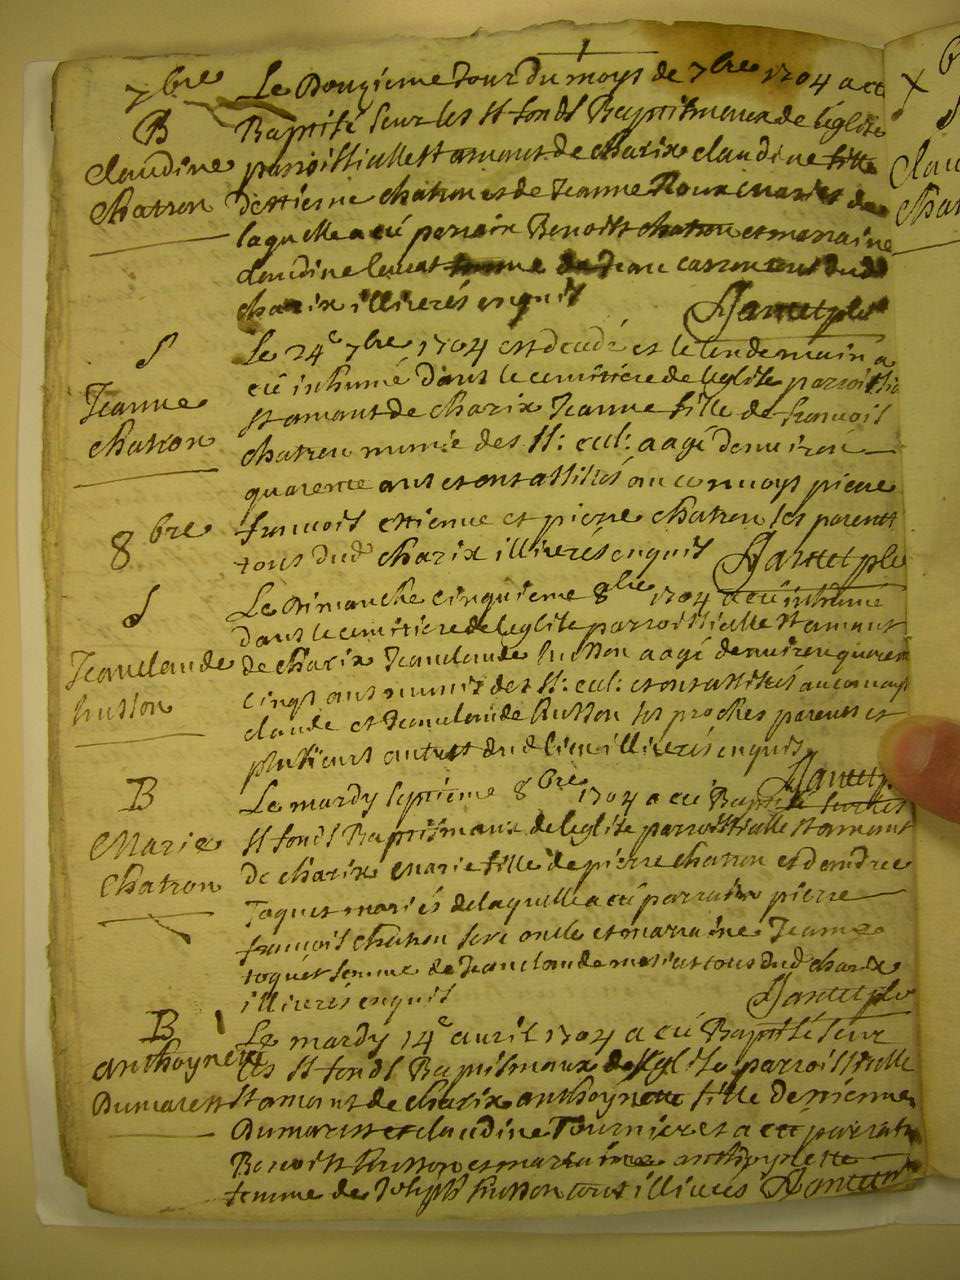 7bre
B
Claudine
Chatron
Le Douzieme Jour du moys de 7bre 1704 a eté
Baptisé seur les St fonds Baptismaux de l'eglise
parroissialle St amant de charix claudine fille
d'ettienne chatron et de Jeanne Roux mariés de
laquelle a eté perrain Benoist chatron et marraine
claudine
charix illiterés enquis
S
Jeanne
chatron
Le 24e 7bre 1704 est decedé et le lendemain a
eté inhumé dans le cemitiere de leglise parroissia
St amant de charix Jeanne fille de francois
chatron munie des SS: ecl: aagé denviron
quarente ans et ont assistés au convoys pierre
francois ettienne et pierre chatron ses parents
tous dud charix illiterés enquis Jantet pbr
8bre
S
Jeanclaude
husson
Le Dimanche cinquieme 8bre 1704 a eté inhume
dans le cemitiere de leglise parroissialle St amant
de charix Jeanclaude husson aagé denviron quarente
cinqs ans munis des SS: ecl: et ont assistés au convoys
claude et Jeanclaude husson ses proches parents et
plusieurs autres dud lieu illiterés enquis
Jantet p
B
Marie
Chatron
Le mardy septieme 8bre 1704 a eté Baptisé seur les
St fonds Baptismaux de leglise parroissialle St amant
de charix marie fille de pierre chatron et dandree
Toquet mariés de laquelle a eté parrain pierre
francois chatron son oncle et marraine Jeanne
toquet femme de Jeanclaude tous dud charix
illiterés enquis Jantet pbr
B
anthoynette
Dumarest
Le mardy 14e avril 1704 a eté Baptisé seur
les St fonds Baptismaux de leglise parroissialle
St amant de charix anthoynette fille dettienne
Dumarest et claudine Tournier et a eté parrain
Benoist husson et marraine anthoynette
femme de Joseph husson tous illiterés Jantet